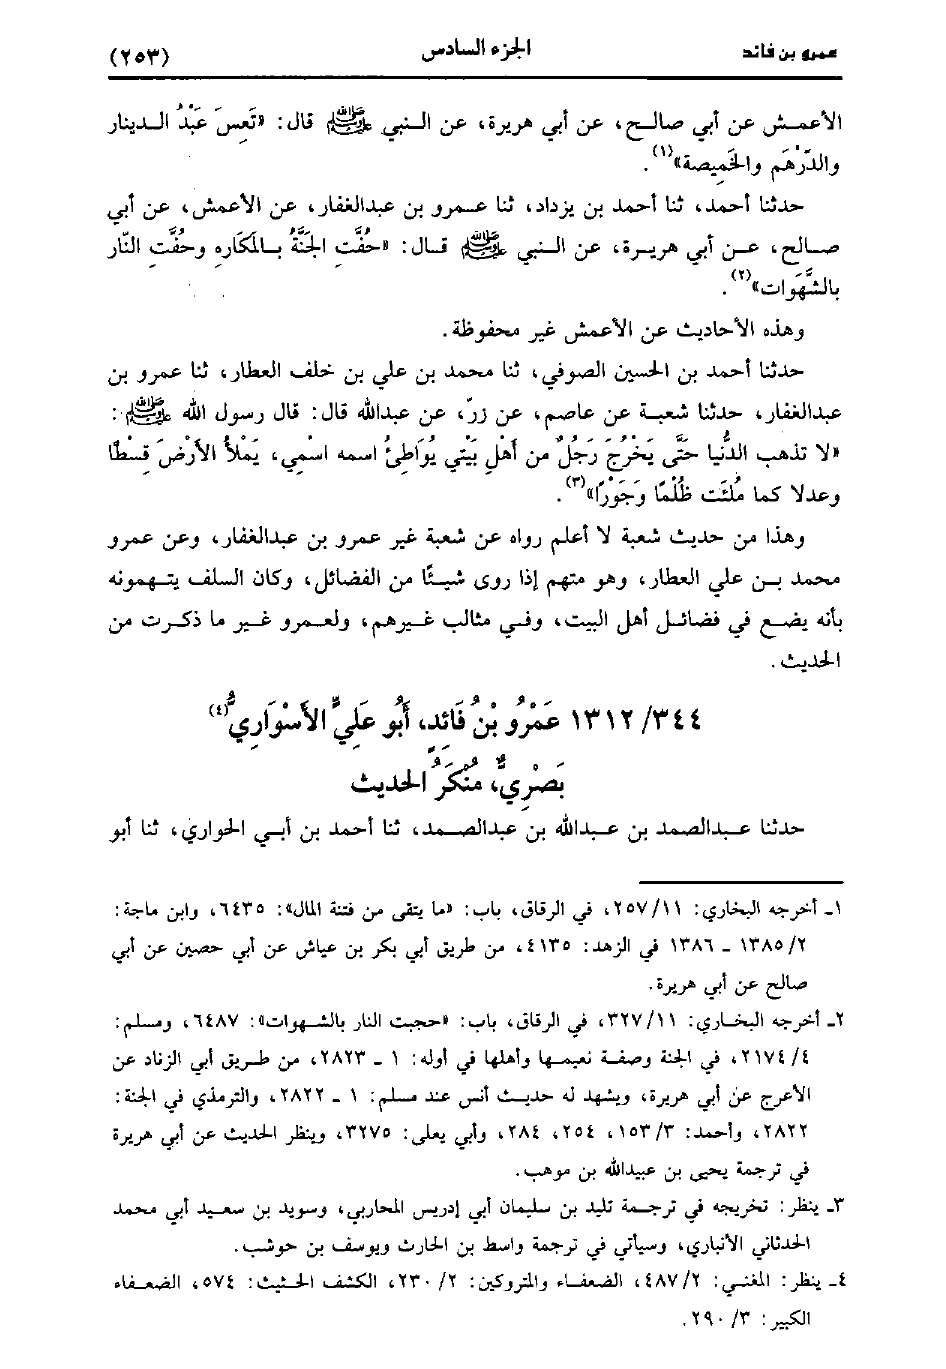 عمرو بن فائد الجزء السادس (٢٥٣)
الأعمـش عن أبي صالـح، عن أبي هريرة، عن النـبي ﷺ قال: «تَعِسَ عَبْدُ الدينار
والدِّرْهَمِ والخَمِيصة»(١).
حدثنا أحمد، ثنا أحمد بن يزداد، ثنا عمرو بن عبدالغفار، عن الأعمش، عن أبي
صالح، عن أبي هريرة، عن النبي ﷺ قال: «حُفَّتِ الجَنَّةُ بالمَكَارِهِ وحُفَّتِ النَّار
بالشَّهَوات»(٢).
وهذه الأحاديث عن الأعمش غير محفوظة.
حدثنا أحمد بن الحسين الصوفي، ثنا محمد بن علي بن خلف العطار، ثنا عمرو بن
عبدالغفار، حدثنا شعبة عن عاصم، عن زرّ، عن عبدالله قال: قال رسول الله ﷺ:
«لا تذهب الدُّنيا حَتَّى يَخْرُجَ رَجُلٌ مِن أَهْلِ بَيْتِي يُوَاطِئُ اسمه اسْمِي، يَمْلأُ الأرْضَ قِسْطًا
وعدلا كما مُلِئَت ظُلْمًا وَجَوْرًا»(٣).
وهذا من حديث شعبة لا أعلم رواه عن شعبة غير عمرو بن عبدالغفار، وعن عمرو
محمد بن علي العطار، وهو متهم إذا روى شيئًا من الفضائل، وكان السلف يتهمونه
بأنه يضع في فضائل أهل البيت، وفي مثالب غيرهم، ولعمرو غير ما ذكرت من
الحديث.
١٣١٢/٣٤٤ عَمْرُو بْنُ فَائد، أَبُو عَلِيٍّ الأَسْوَارِيُّ(٤)
بَصْرِيٌّ، مُنْكَرُ الحديث
حدثنا عبدالصمد بن عبدالله بن عبدالصمد، ثنا أحمد بن أبي الحواري، ثنا أبو
١ـ أخرجه البخاري: ٢٥٧/١١، في الرقاق، باب: «ما يتقى من فتنة المال»: ٦٤٣٥، وابن ماجة:
١٣٨٥/٢ ـ ١٣٨٦ في الزهد: ٤١٣٥، من طريق أبي بكر بن عياش عن أبي حصين عن أبي
صالح عن أبي هريرة.
٢ـ أخرجه البخاري: ٣٢٧/١١، في الرقاق، باب: «حجبت النار بالشهوات»: ٦٤٨٧، ومسلم:
٢١٧٤/٤، في الجنة وصفة نعيمها وأهلها في أوله: ١ ـ ٢٨٢٣، من طريق أبي الزناد عن
الأعرج عن أبي هريرة، ويشهد له حديث أنس عند مسلم: ١ ـ ٢٨٢٢، والترمذي في الجنة:
٢٨٢٢، وأحمد: ١٥٣/٣، ٢٥٤، ٢٨٤، وأبي يعلى: ٣٢٧٥، وينظر الحديث عن أبي هريرة
في ترجمة يحيى بن عبيدالله بن موهب.
٣ـ ينظر: تخريجه في ترجمة تليد بن سليمان أبي إدريس المحاربي، وسويد بن سعيد أبي محمد
الحدثاني الأنباري، وسيأتي في ترجمة واسط بن الحارث ويوسف بن حوشب.
٤ـ ينظر: المغني: ٤٨٧/٢، الضعفاء والمتروكين: ٢٣٠/٢، الكشف الحثيث: ٥٧٤، الضعفاء
الكبير: ٢٩٠/٣.